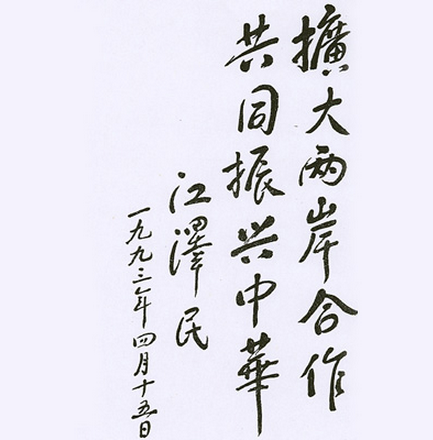 擴大两岸合作
共同振兴中華
江澤民
一九九三年四月十五日